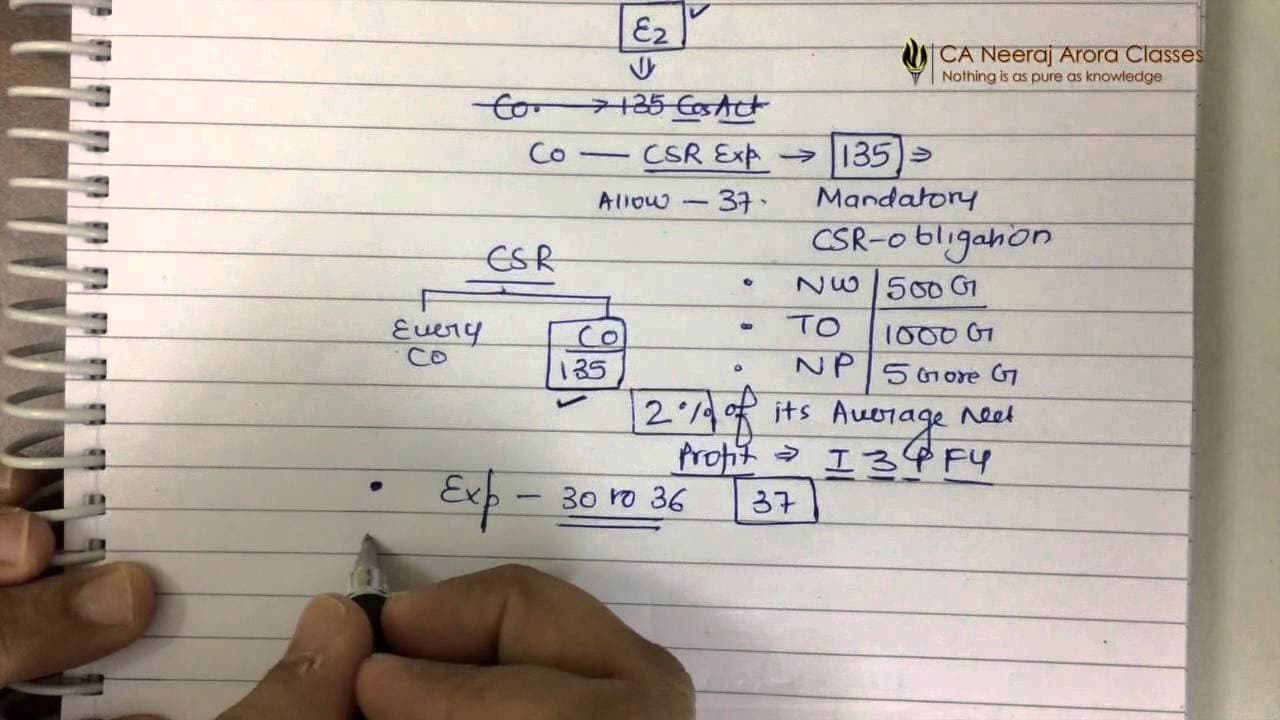 E2
CA Neeraj Arora Classes
Nothing is as pure as knowledge
Co. → 135 Cos Act
Co — CSR Exp → 135 ⇒
Allow – 37. Mandatory
CSR-obligation
CSR
• NW | 500 Cr
Every • TO | 1000 Cr
Co Co
135 • NP | 5 Crore Cr
2% of its Average Net
Profit ⇒ I 3 P F Y
• Exp – 30 to 36 37